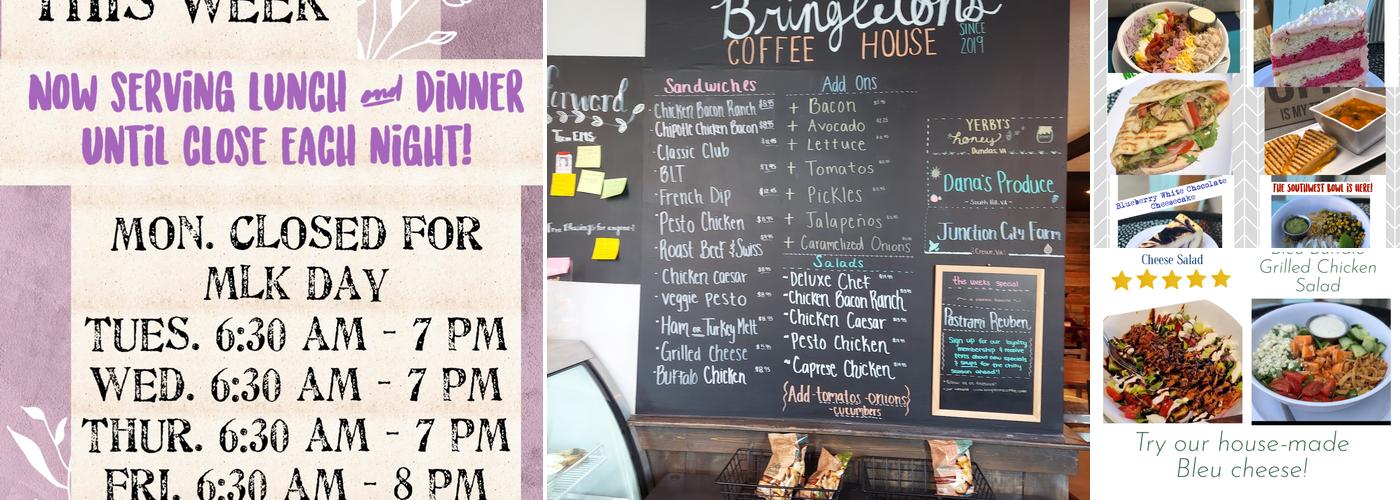 THIS WEEK
NOW SERVING LUNCH and DINNER
UNTIL CLOSE EACH NIGHT!
MON. CLOSED FOR
MLK DAY
TUES. 6:30 AM - 7 PM
WED. 6:30 AM - 7 PM
THUR. 6:30 AM - 7 PM
FRI. 6:30 AM - 8 PM
forward
Bringletons
COFFEE HOUSE
SINCE
2019
Sandwiches
Chicken Bacon Ranch
Chipotle Chicken Bacon
Classic Club
BLT
French Dip
Pesto Chicken
Roast Beef & Swiss
Chicken Caesar
Veggie Pesto
Ham or Turkey Melt
Grilled Cheese
Buffalo Chicken
Add Ons
+ Bacon
+ Avocado
+ Lettuce
+ Tomatos
+ Pickles
+ Jalapeños
+ Caramelized Onions
Salads
-Deluxe Chef
-Chicken Bacon Ranch
-Chicken Caesar
-Pesto Chicken
-Caprese Chicken
{Add tomatos-onions}
-cucumbers
YERBY'S
honey
Dundas, VA
Dana's Produce
- South Hill, VA -
Junction City Farm
Crewe, VA
the weeks special
Pastrami Reuben
Sign up for our loyalty
membership & receive
texts about new specials
& soups for the chilly
season ahead!
IS MY
Blueberry White Chocolate
Cheesecake
THE SOUTHWEST BOWL IS HERE!
Cheese Salad
Grilled Chicken
Salad
Try our house-made
Bleu cheese!